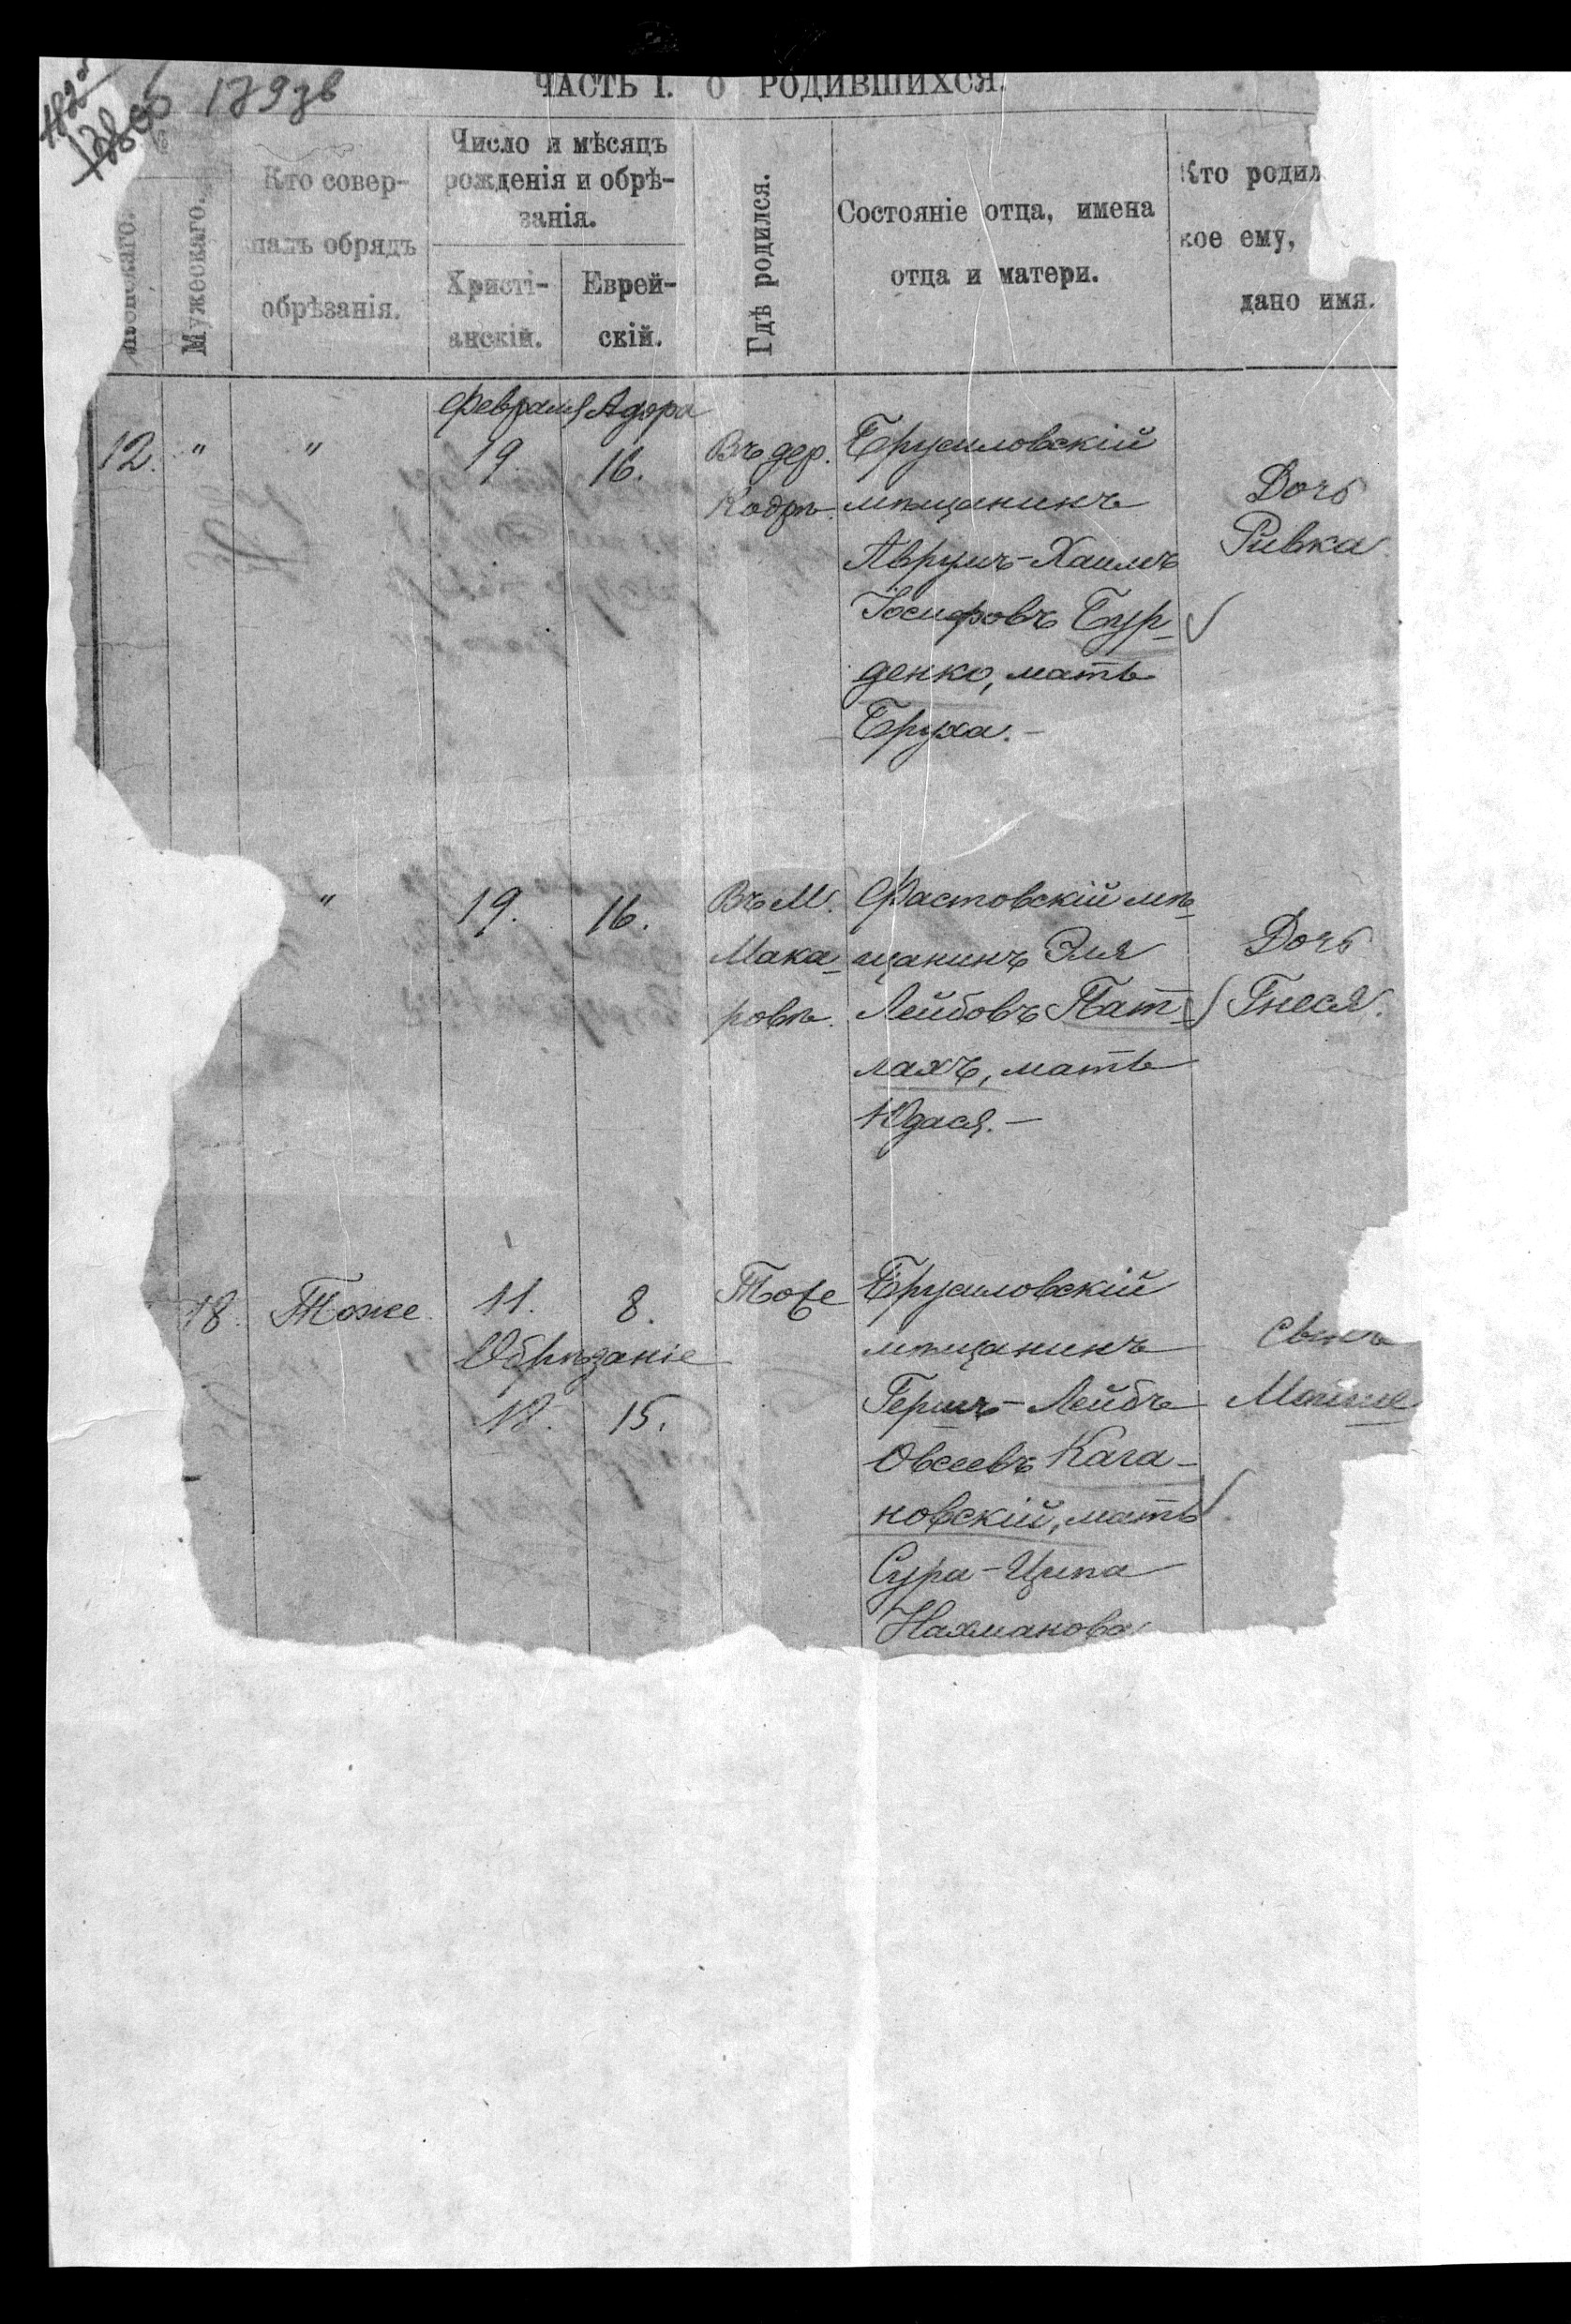 179зв
ЧАСТЬ I. О РОДИВШИХСЯ.
Женскаго.
Мужескаго.
Кто совер-
шалъ обрядъ
обрѣзанія.
Число и мѣсяцъ
рожденія и обрѣ-
занія.
Христі-
анскій.
Еврей-
скій.
Гдѣ родился.
Состояніе отца, имена
отца и матери.
Кто родил
кое ему,
дано имя.
Февраля Адора
12. " " 19. 16.
Въ дер.
Кодрѣ.
Брусиловскій
мѣщанинъ
Аврумъ-Хаимъ
Іосифовъ Бур-
денко, мать
Бруха.-
Дочь
Ривка
" 19. 16.
Въ М.
Мака-
ровѣ.
Фастовскій мѣ-
щанинъ Эля
Лейбовъ Пат-
лахъ, мать
Юдася.-
Дочь
Гнеся.
18. Тоже. 11. 8.
Обрѣзаніе
18. 15.
Тоже
Брусиловскій
мѣщанинъ
Гершъ-Лейбъ
Овсеевъ Кага-
новскій, мать
Сура-Ципа
Нахманова
Сынъ
Мошко